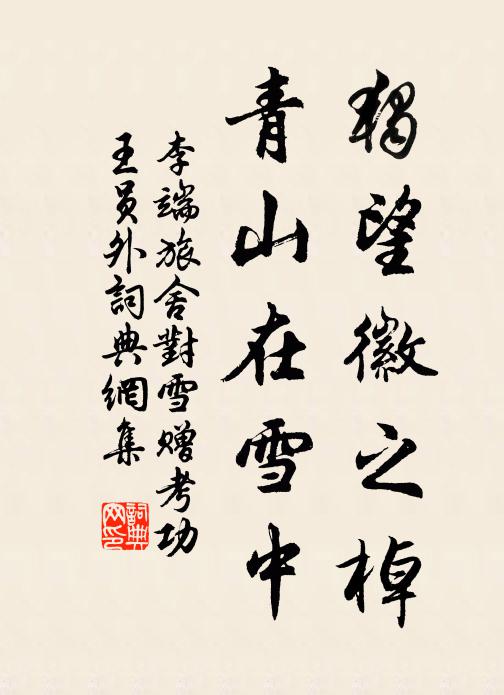 獨望徽之棹
青山在雪中
李端旅舍對雪贈考功
王員外詞典網集
詞典網印